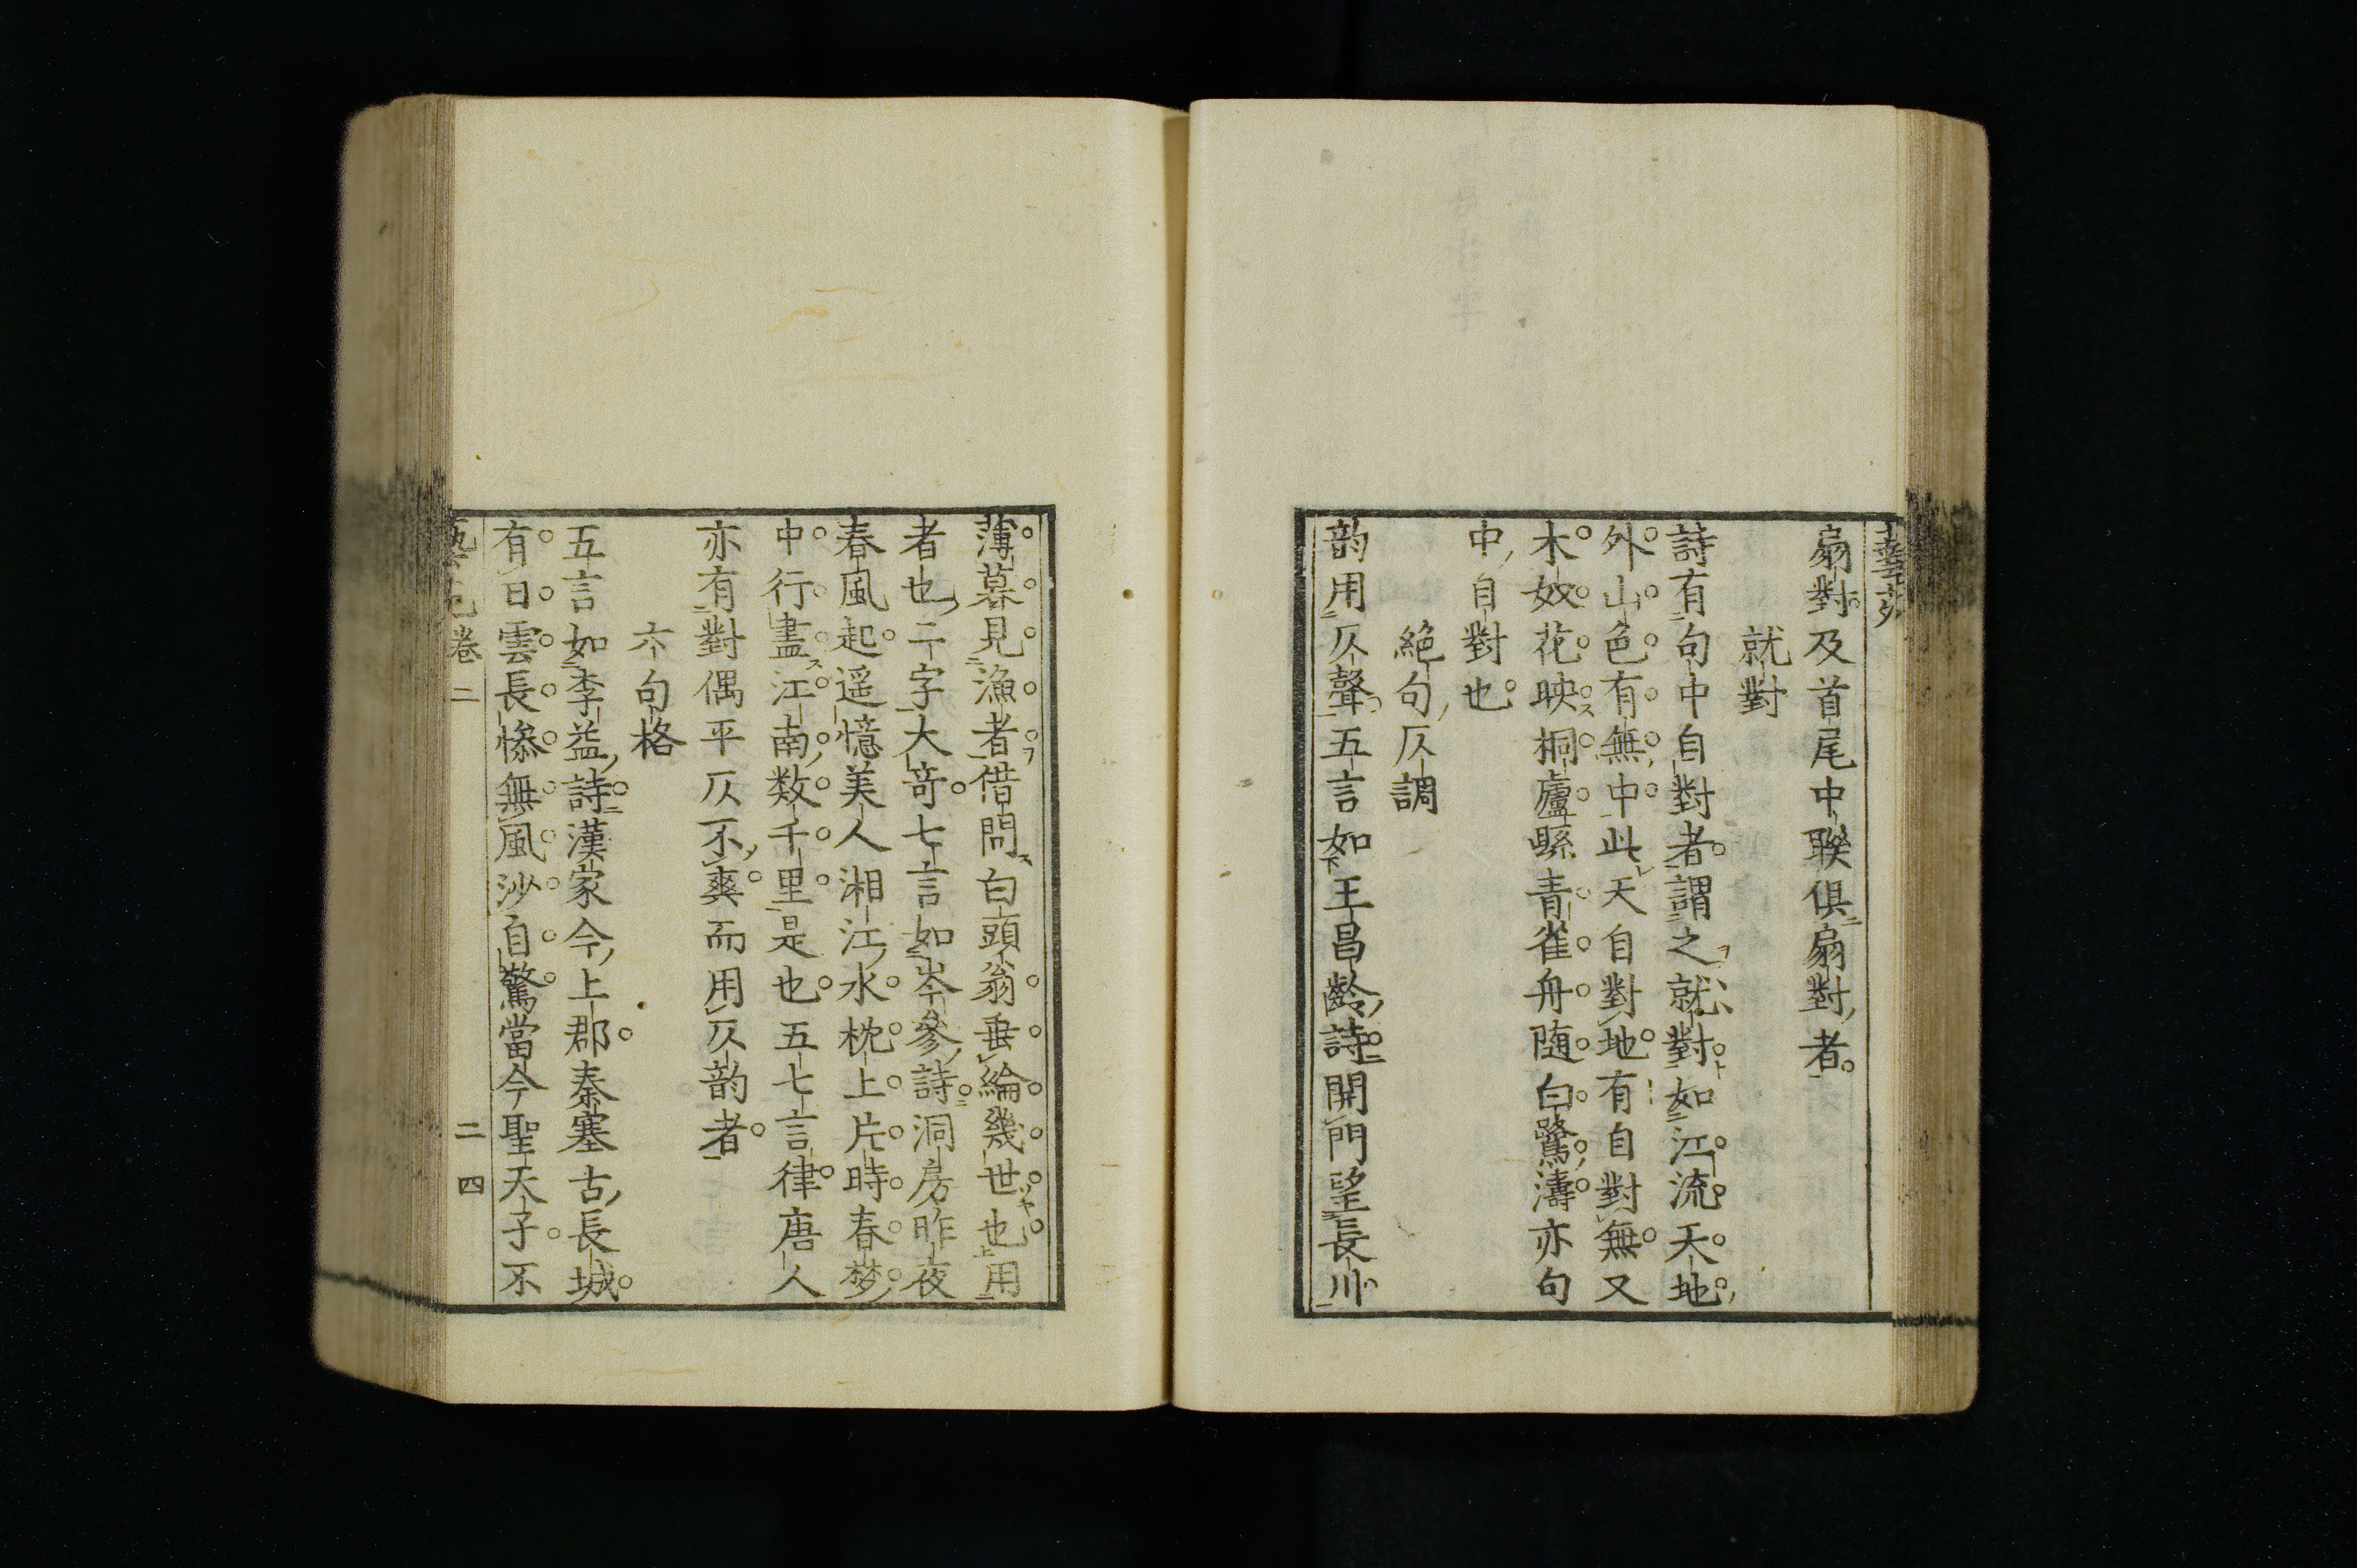 扇對及首尾中聯俱扇對者
就對
詩有句中自對者謂之就對如江流天地
外山色有無中此天自對地有自對無又
木奴花映桐廬縣青雀舟随白鷺濤亦句
中自對也
絕句仄調
韵用仄聲五言如王昌齡詩開門望長川
薄暮見漁者借問白頭翁垂綸幾世也用
者也二字大竒七言如岑參詩洞房昨夜
春風起遥憶美人湘江水枕上片時春夢
中行盡江南数千里是也五七言律唐人
亦有對偶平仄不爽而用仄韵者
六句格
五言如李益詩漢家今上郡秦塞古長城
有日雲長慘無風沙自驚當今聖天子不
卷二
二四